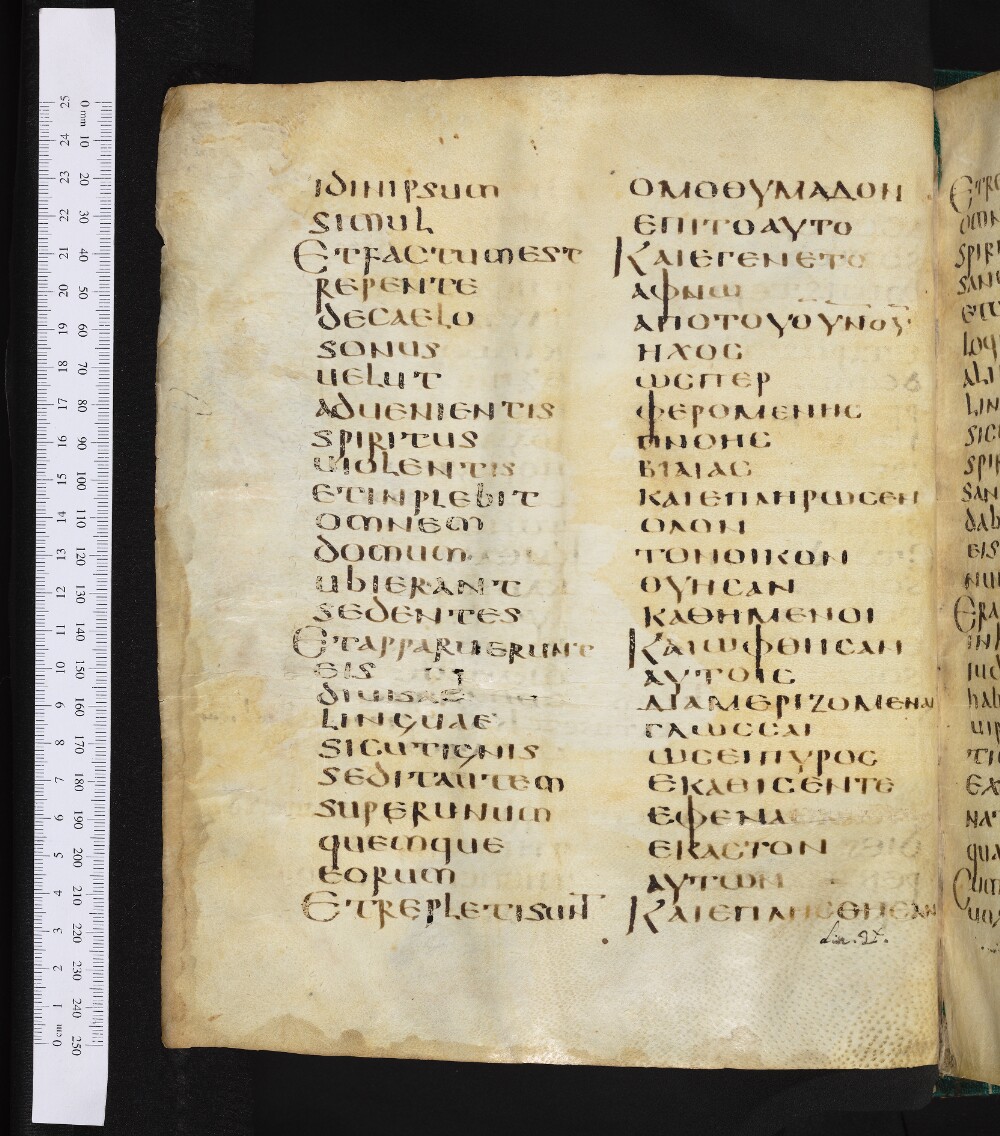 idinipsum
simul
Etfactumest
repente
decaelo
sonus
uelut
aduenientis
spiritus
uiolentis
etinplebit
omnem
domum
ubierant
sedentes
Etapparuerunt
eis
linguae
sicutignis
seditautem
superunum
quemque
eorum
Etrepletisunt
ΟΜΟΘΥΜΑΔΟΝ
ΕΠΙΤΟΑΥΤΟ
ΚΑΙΕΓΕΝΕΤΟ
ΑΦΝΩ
ΑΠΟΤΟΥΟΥΝΟΥ
ΗΧΟϹ
ΩϹΠΕΡ
ΦΕΡΟΜΕΝΗϹ
ΠΝΟΗϹ
ΒΙΑΙΑϹ
ΚΑΙΕΠΛΗΡΩϹΕΝ
ΟΛΟΝ
ΤΟΝΟΙΚΟΝ
ΟΥΗϹΑΝ
ΚΑΘΗΜΕΝΟΙ
ΚΑΙΩΦΘΗϹΑΝ
ΑΥΤΟΙϹ
ΔΙΑΜΕΡΙΖΟΜΕΝΑΙ
ΓΛΩϹϹΑΙ
ΩϹΕΙΠΥΡΟϹ
ΕΚΑΘΙϹΕΝΤΕ
ΕΦΕΝΑ
ΕΚΑϹΤΟΝ
ΑΥΤΩΝ
ΚΑΙΕΠΛΗϹΘΗϹΑΝ